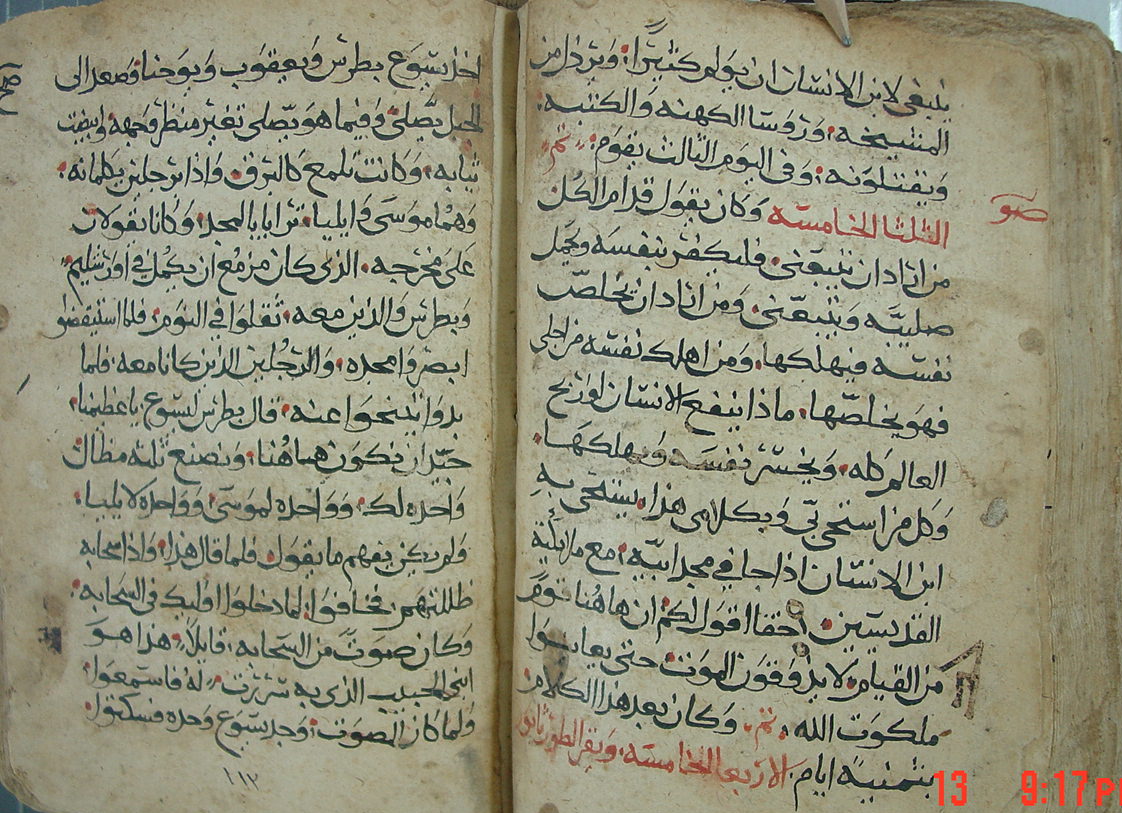 ينبغي لابن الانسان ان يولم كثيرًا؛ ويرذل من
المشيخه؛ وروسا الكهنه والكتبه؛
ويقتلونه؛ وفي اليوم الثالث يقوم؛ تم
الثلثا الخامسه وكان يقول قدام الكل
صو
من اراد ان يتبعني فليكفر بنفسه ويحمل
صليبه ويتبعني. ومن اراد ان يخلص
نفسه فيهلكها. ومن اهلك نفسه من اجلي
فهو يخلصها. ماذا ينفع الانسان لو ربح
العالم كله. ويخسر نفسه ويهلكها.
وكل من استحى بي وبكلامي هذا. يستحي به
ابن الانسان اذا جا في مجد ابيه؛ مع ملايكته
القديسين. حقا اقول لكم ان هاهنا قوم
من القيام لا يذوقون الموت حتى يعاينوا
ملكوت الله. تم. وكان بعد هذا الكلام
بثمنية ايام. الاربعا الخامسه. ويقرا لطور ثابور
اخذ يسوع بطرس ويعقوب ويوحنا وصعد الى
الجبل يصلي وفيما هو يصلي تغير منظر وجهه وابيضت
ثيابه. وكانت تلمع كالبرق. واذا برجلين يكلمانه.
وهما موسى وايليا. ترايا بالمجد. وكانا يقولان
على مخرجه. الذي كان مزمع ان يكمل في اورشليم.
وبطرس والذين معه. ثقلوا في النوم. فلما استيقضوا
ابصروا مجده. والرجلين الذين كانا معه. فلما
بدوا يتنحوا عنه. قال بطرس ليسوع. ياعظيمنا.
خير ان نكون هاهنا. ونصنع ثلثه مظال
واحده لك. وواحده لموسى وواحده لايليا.
ولم يكن يفهم ما يقول. فلما قال هذا. واذا سحابه
ظللتهم. فخافوا. لما دخلوا اوليك في السحابه.
وكان صوت من السحابه. قايلا. هذا هو
ابني الحبيب الذي به سررت. له فاسمعوا.
ولما كان الصوت؛ وجد يسوع وحده فسكتوا.
١١٣
13 9:17 P